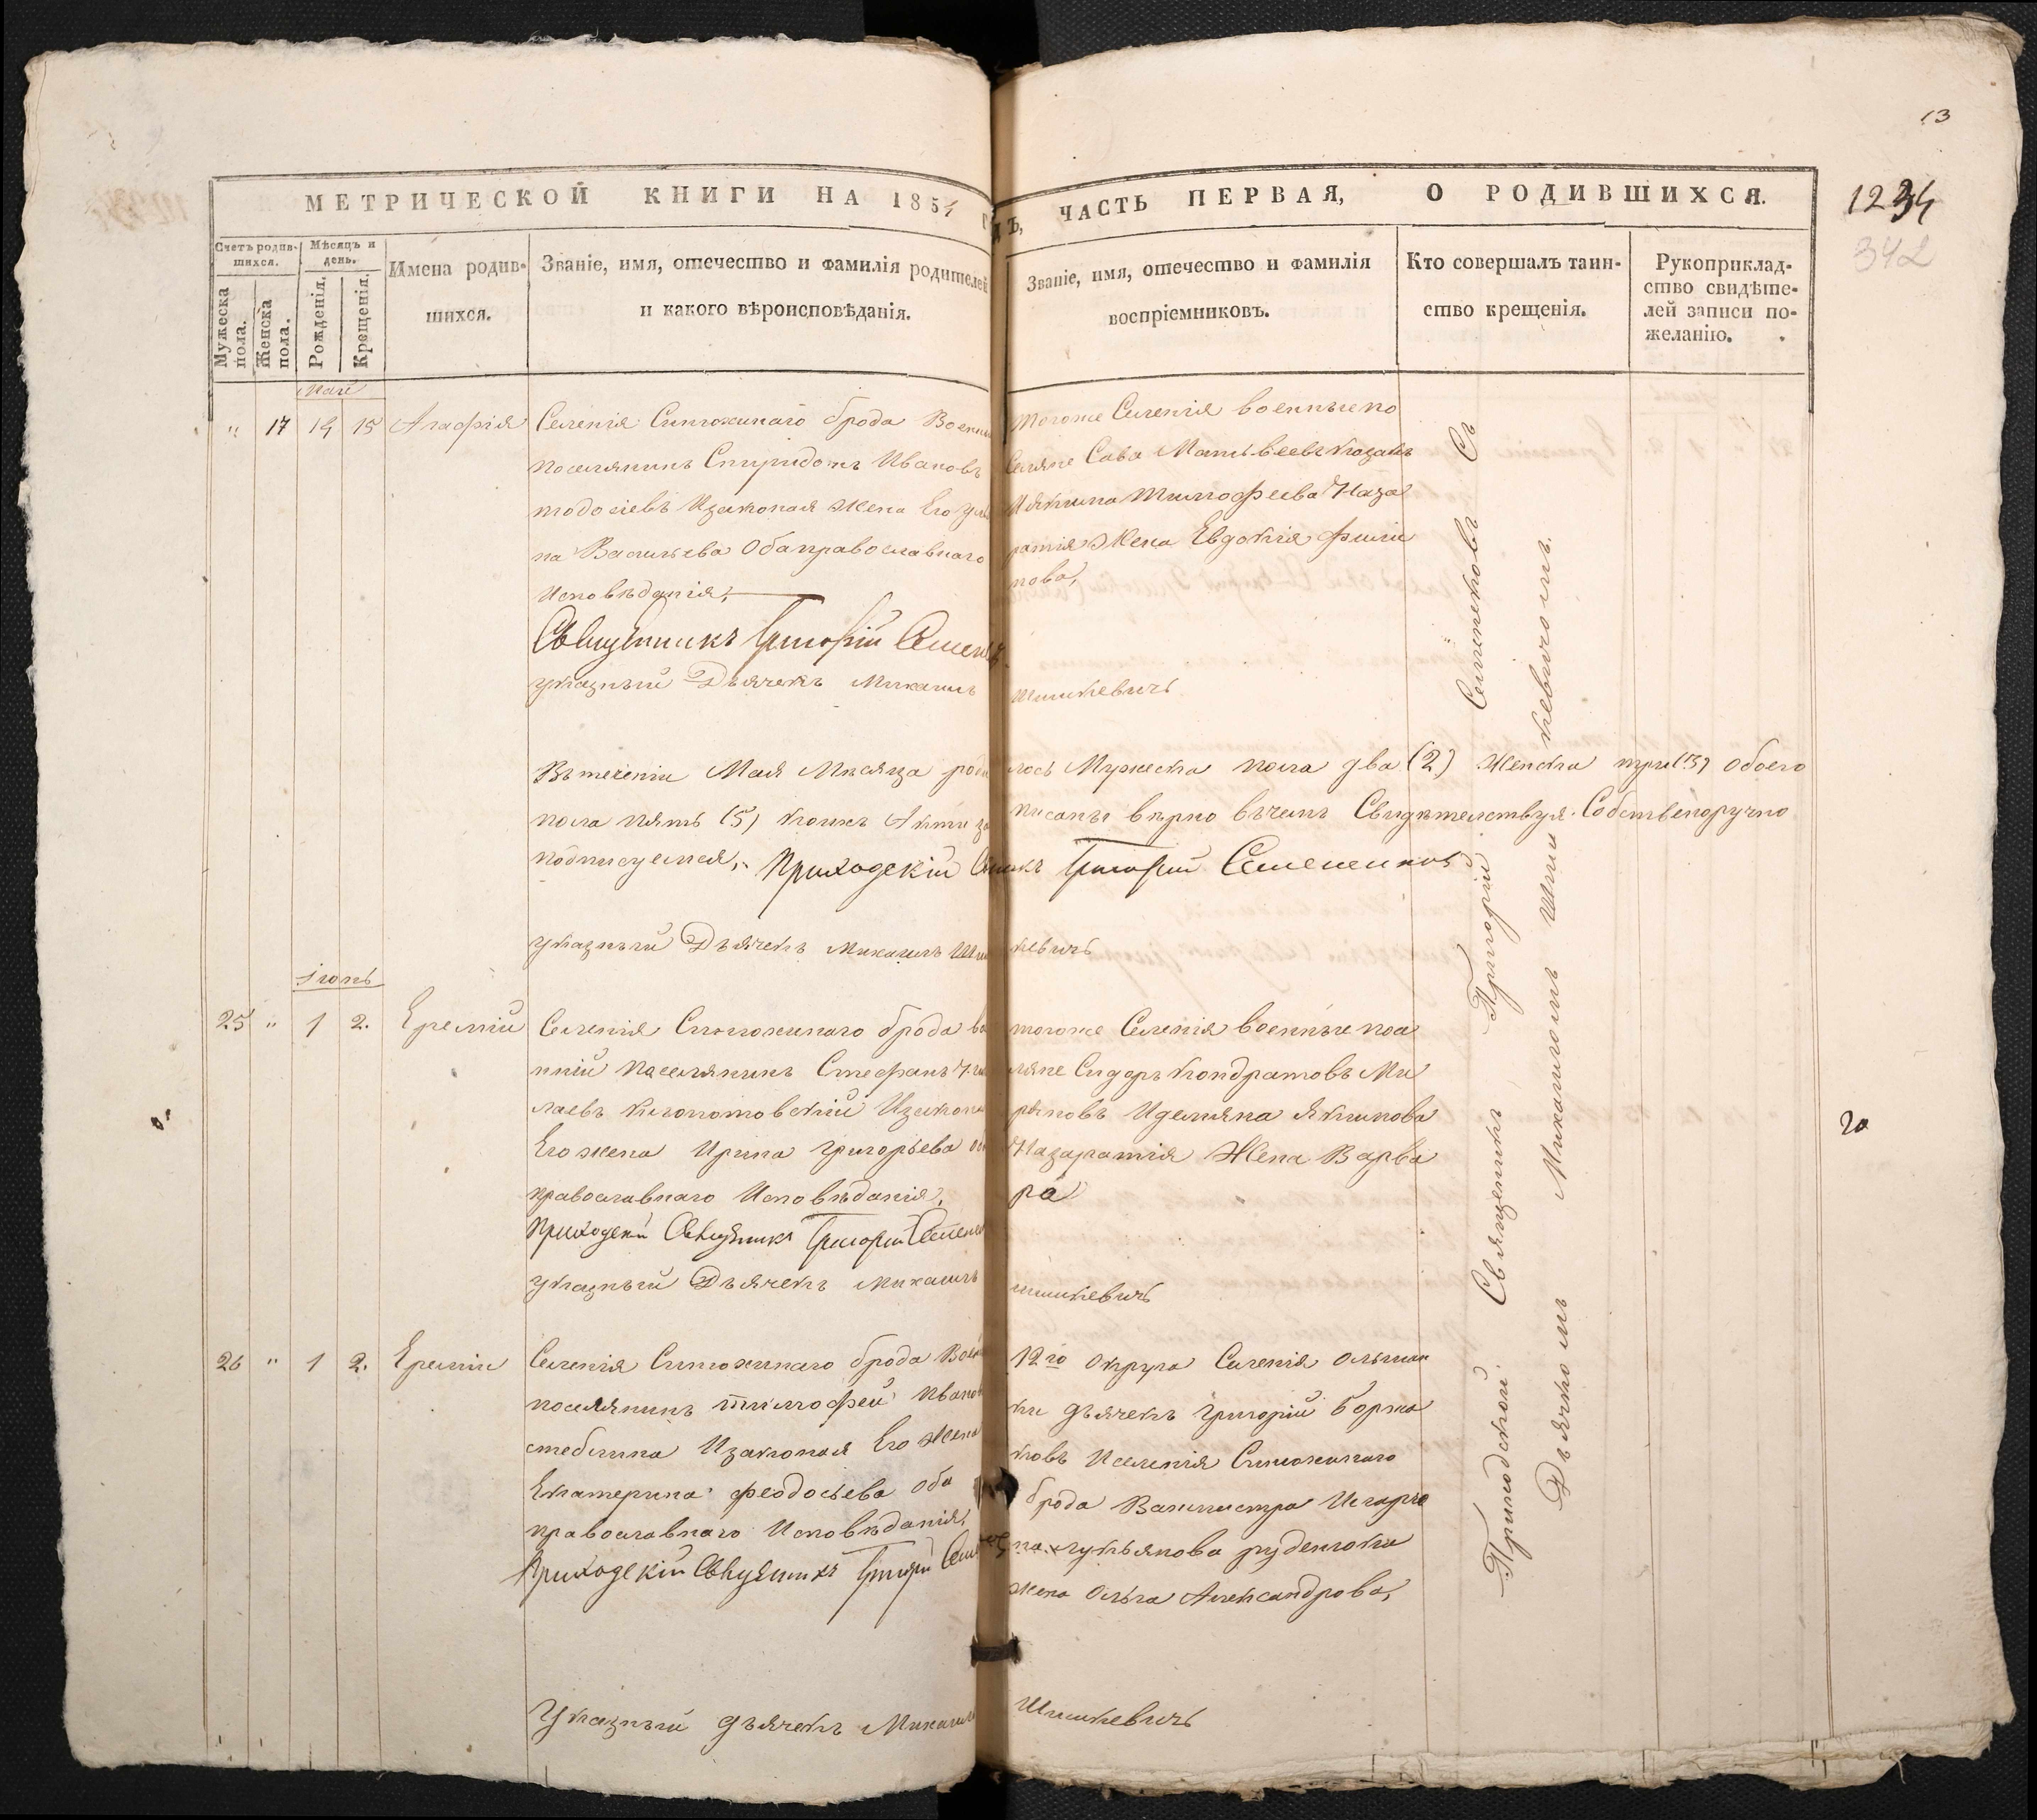 13
МЕТРИЧЕСКОЙ КНИГИ НА 1854
ЧАСТЬ ПЕРВАЯ, О РОДИВШИХСЯ.
1234
342
Счетъ родив-
шихся.
Мѣсяцъ и
день.
Мужеска
пола.
Женска
пола.
Рожденія.
Крещенія.
Имена родив-
шихся.
Званіе, имя, отечество и фамилія родителей
и какого вѣроисповѣданія.
Званіе, имя, отечество и фамилія
воспріемниковъ.
Кто совершалъ таин-
ство крещенія.
Рукоприклад-
ство свидѣте-
лей записи по-
желанію.
Май
" 17 14 15 Агафія
Селенія Синюхинаго брода Военны
поселянинъ Спиридонъ Ивановъ
Изаконая жена Его
на Васильева Оба православнаго
Исповѣданія,
Священникъ Григорій Семен
указный Дьячекъ Михаилъ
тогоже Селенія военные по
селяне Сава Матвѣевъ Козакъ
Тимофеева Наза
жена Евдокія Фили
пова,
Шишкевичъ
Втеченіи Мая Мѣсяца роди
лось Мужеска пола два (2) Женска три (3) обоего
пола пять (5) коихъ Акты за
писаны вѣрно вчемъ Свидѣтельствуя Собственоручно
подписуемся, Приходскій
Григорій Семенников
указный Дьячекъ Михаилъ Шиш
кевичъ
Іюнь
25 " 1 2. Еремій
Селенія Синюхинаго брода во
нній Поселянинъ Стефанъ
лаевъ Изакона
Его жена Ирина Григорьева
православнаго Исповѣданія,
Приходскій Священникъ Григорій Семен
указный Дьячекъ Михаилъ
тогоже Селенія военные посе
ляне Сидоръ Кондратовъ Ми
Якимова
Жена Варва
ра
шишкевичъ
20
26 " 1 2. Еремій
Селенія Синюхинаго брода Воен
поселянинъ тимофей Иванов
стеблина Изаконая Его жена
Екатерина феодосьева оба
православнаго Исповѣданія,
Приходскій Священникъ Григорій
Указный дьячекъ Михаилъ
12го Округа Селенія Ольшан
ки дьячекъ Григорій Боржа
ковъ Иселенія Синюхинаго
брода Вахмистра
лукьянова руденкова
жена Ольга Александрова,
Шишкевичъ
Приходской Священникъ Григорій Семенековъ Съ
Дьячкомъ Михаиломъ Шиш кевичомъ.